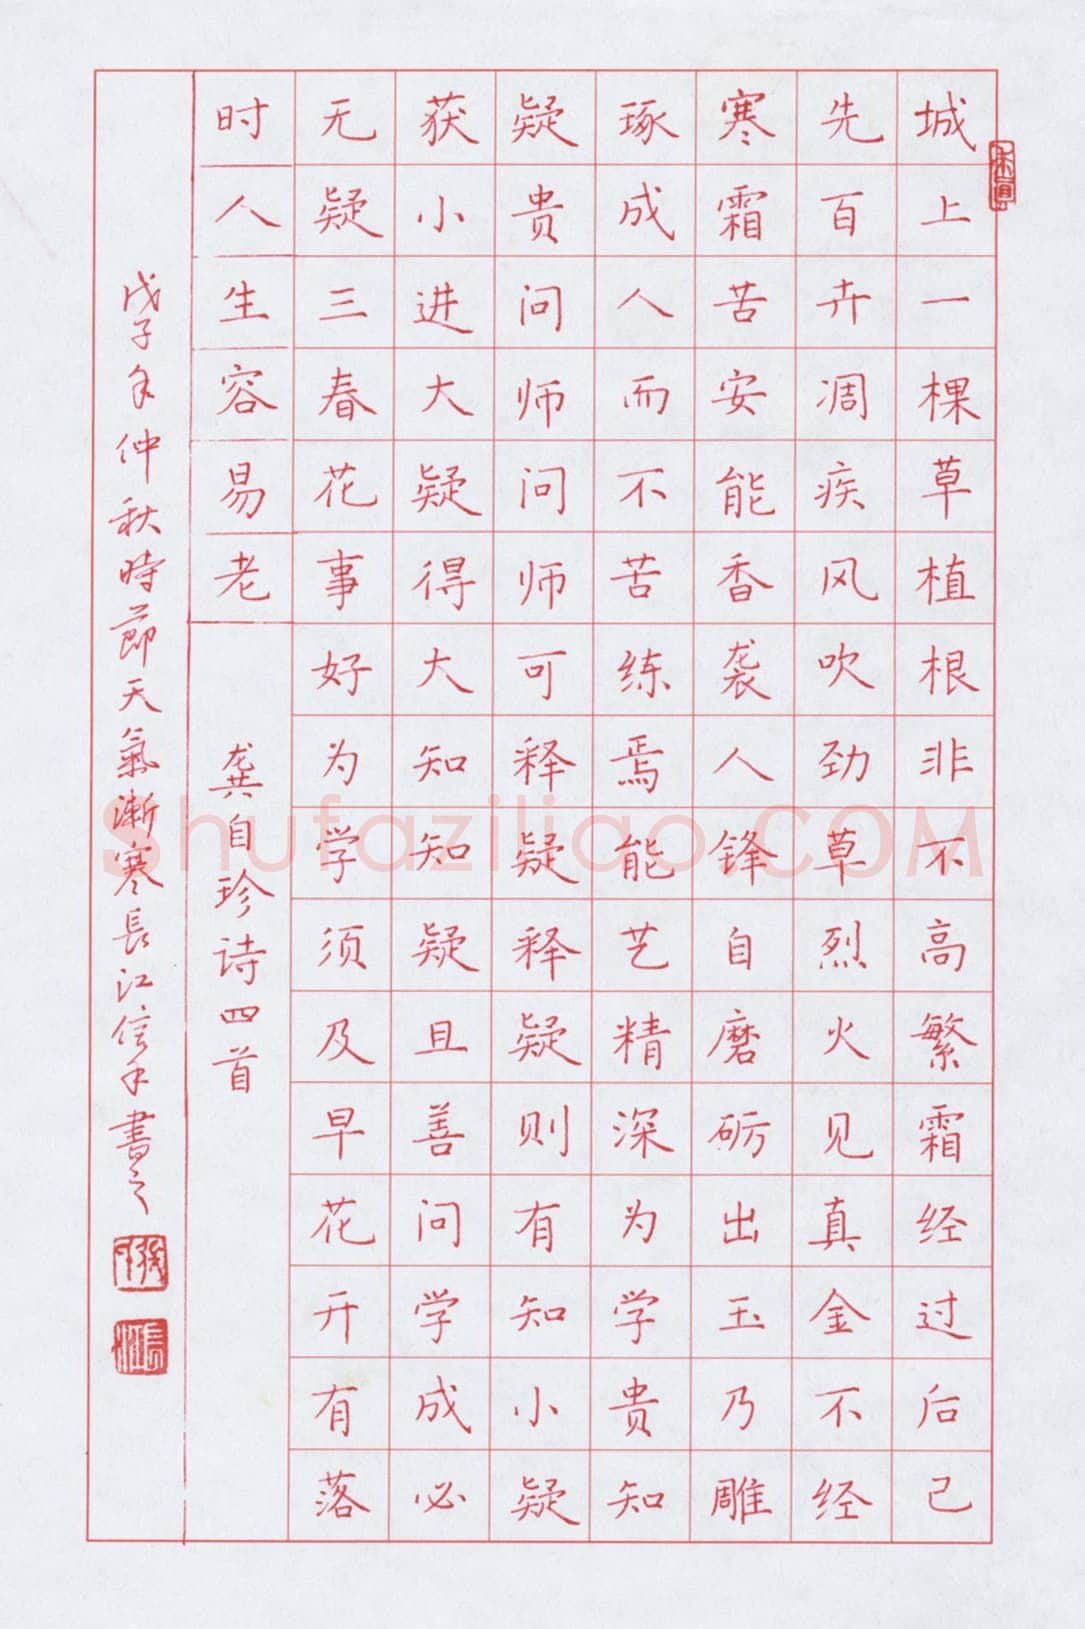 城上一棵草植根非不高繁霜经过后己
先百卉凋疾风吹劲草烈火见真金不经
寒霜苦安能香袭人锋自磨砺出玉乃雕
琢成人而不苦练焉能艺精深为学贵知
疑贵问师问师可释疑释疑则有知小疑
获小进大疑得大知知疑且善问学成必
无疑三春花事好为学须及早花开有落
时人生容易老
龚自珍诗四首
戊子年仲秋時節天氣漸寒長江信手書之
Shufaziliao.COM